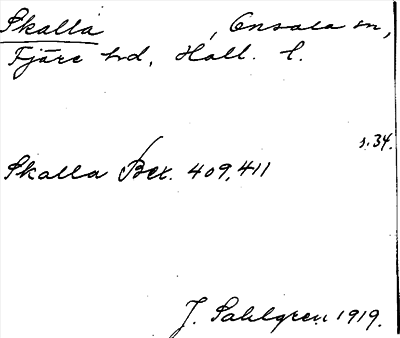 Skalla , Onsala sn,
Fjäre hd, Hall. l.
s. 34.
Skalla Bex. 409, 411
J. Sahlgren 1919.